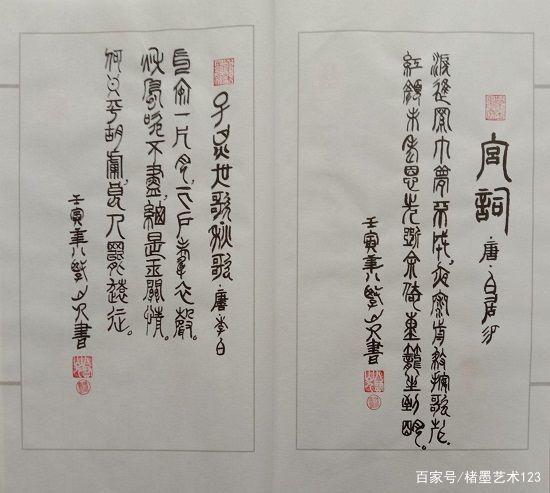 宮詞
唐·白居易
淚溼羅巾夢不成，夜深前殿按歌聲。
紅顏未老恩先斷，斜倚熏籠坐到明。
壬寅秋八 山人書
子夜吳歌秋歌·唐李白
長安一片月，萬戶擣衣聲。
秋風吹不盡，總是玉關情。
何日平胡虜，良人罷遠征。
壬寅秋八 山人書
百家号/楮墨艺术123